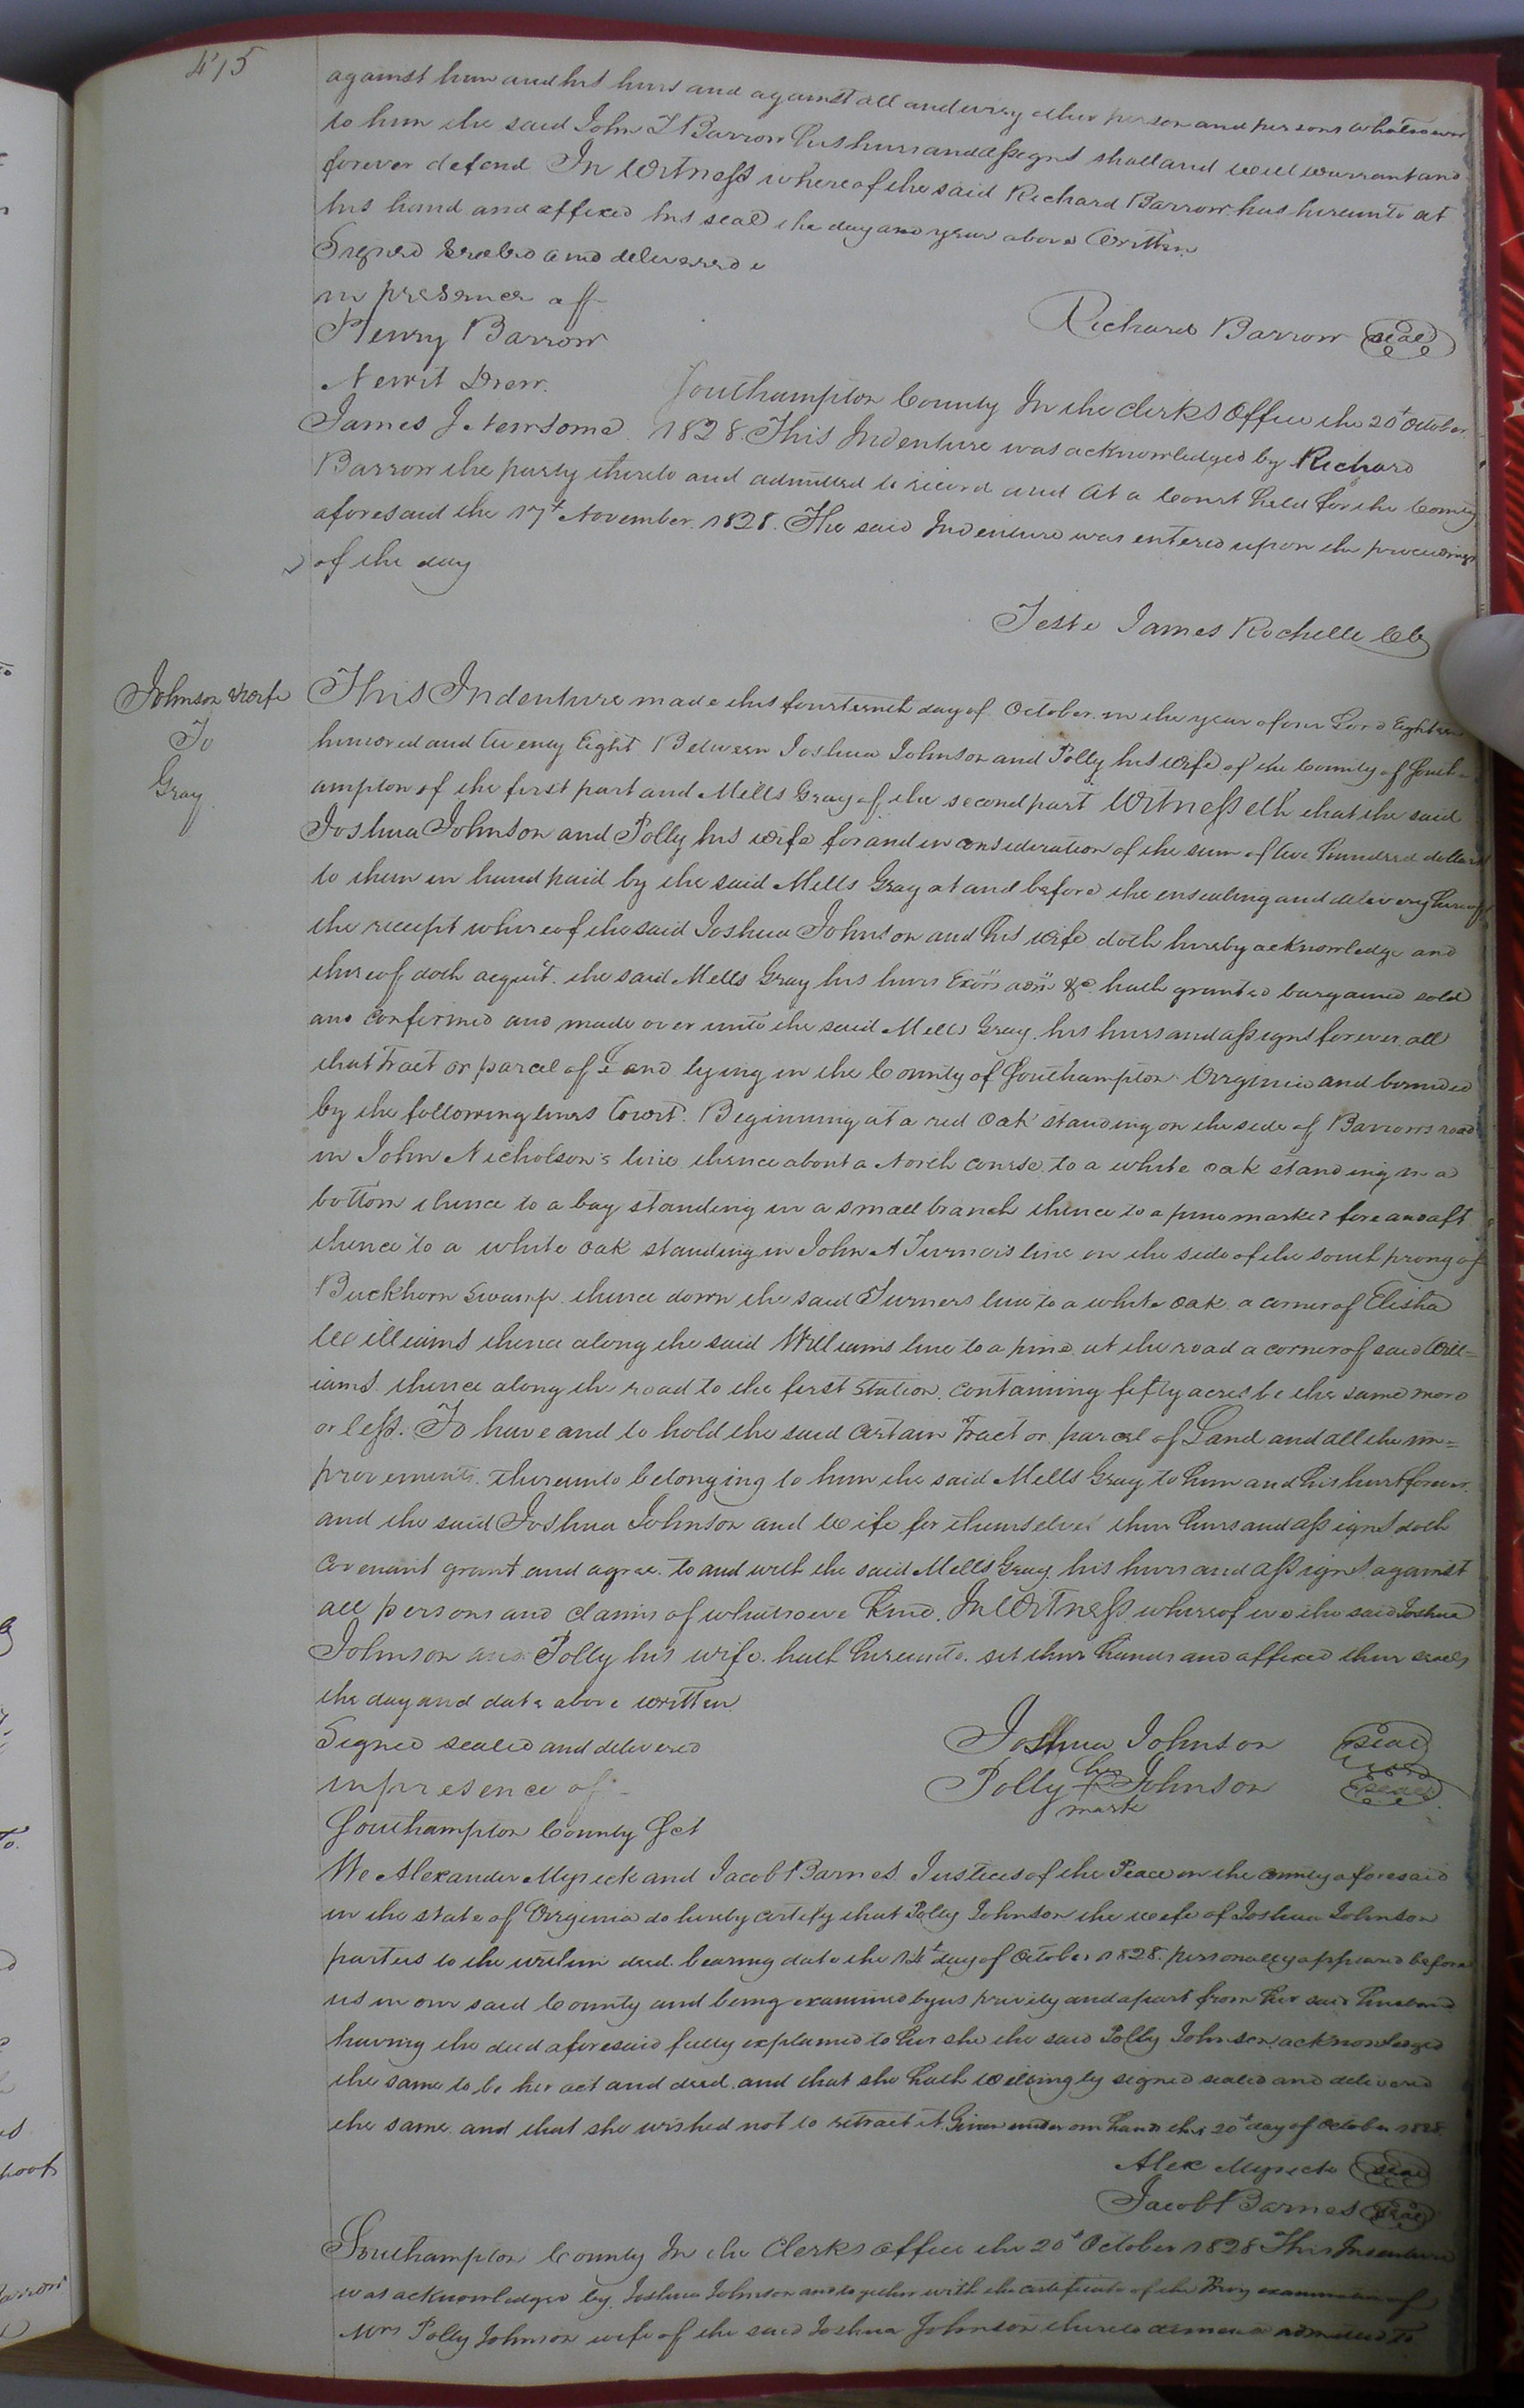 415
against him and his heirs and against all and every other person and persons whatsoever
to him the said John T Barrow his heirs and assigns shall and will warrant and
forever defend In Witness whereof the said Richard Barrow has hereunto set
his hand and affixed his seal the day and year above Written
Signed Sealed and delivered
in presence off
Henry Barrow
Richard Barrow seal
Newit Drew.
Southampton County In the Clerks Office the 20t October
James J Newsome 1828 This Indenture was acknowledged by Richard
Barrow the party thereto and admitted to record and At a Court held for the County
aforesaid the 17t November 1828. The said Indenture was entered upon the proceedings
of the day
Teste James Rochelle
Johnson & wife
To
Gray
This Indenture made this fourteenth day of October in the year of our Lord Eighteen
hundred and twenty Eight Between Joshua Johnson and Polly his wife of the County of South-
ampton of the first part and Mills Gray of the second part Witnesseth that the said
Joshua Johnson and Polly his wife for and in consideration of the sum of hundred dollars
to them in hand paid by the said Mills Gray at and before the ensealing and delivery hereof
the receipt whereof the said Joshua Johnson and his wife doth hereby acknowledge and
thereof doth acquit the said Mills Gray his heirs Exors adm &c hath granted bargained sold
and confirmed and made over unto the said Mills Gray his heirs and assigns forever all
that Tract or parcel of Land lying in the County of Southampton Virginia and bounded
by the following lines Towit. Beginning at a red oak standing on the side of Barrows road
in John Nicholson's line thence about a North course to a white oak standing in a
bottom thence to a bay standing in a small branch thence to a pine marked fore and aft
thence to a white oak standing in John A Turner's line on the side of the south prong of
Buckhorn Swamp thence down the said Turners line to a white oak a corner of Elisha
Williams thence along the said Williams line to a pine at the road a corner of said Will=
iams thence along the road to the first station. containing fifty acres be the same more
or less. To have and to hold the said certain Tract or parcel of Land and all the im=
provements thereunto belonging to him the said Mills Gray to him and his heirs forever.
and the said Joshua Johnson and wife for themselves their heirs and assigns doth
covenant grant and agree to and with the said Mills Gray his heirs and assigns against
all persons and claims of whatsoeve kind. In Witness whereof we the said Joshua
Johnson and Polly his wife hath hereunto set their hands and affixed their seals
the day and date above written
Signed sealed and delivered
Joshua Johnson seal
in presence of
her
Polly Johnson seal
mark
Southampton County Sct
We Alexander Myrick and Jacob Barnes Justices of the Peace in the county aforesaid
in the state of Virginia do hereby certify that Polly Johnson the wife of Joshua Johnson
parties to the within deed bearing date the 14t day of October 1828 personally appeared before
us in our said County and being examined by us privily and apart from her said husband
having the deed aforesaid fully explained to her she the said Polly Johnson acknowledged
the same to be her act and deed and that she hath willingly signed sealed and delivered
the same and that she wished not to retract it Given under our hands this 20t day of October 1828
Alex Myrick seal
Jacob Barnes seal
Southampton County In the Clerks office the 20t October 1828 This Indenture
was acknowledged by Joshua Johnson and together with the certificate of the Privy examination of
Mrs Polly Johnson wife of the said Joshua Johnson thereto annexed admitted to